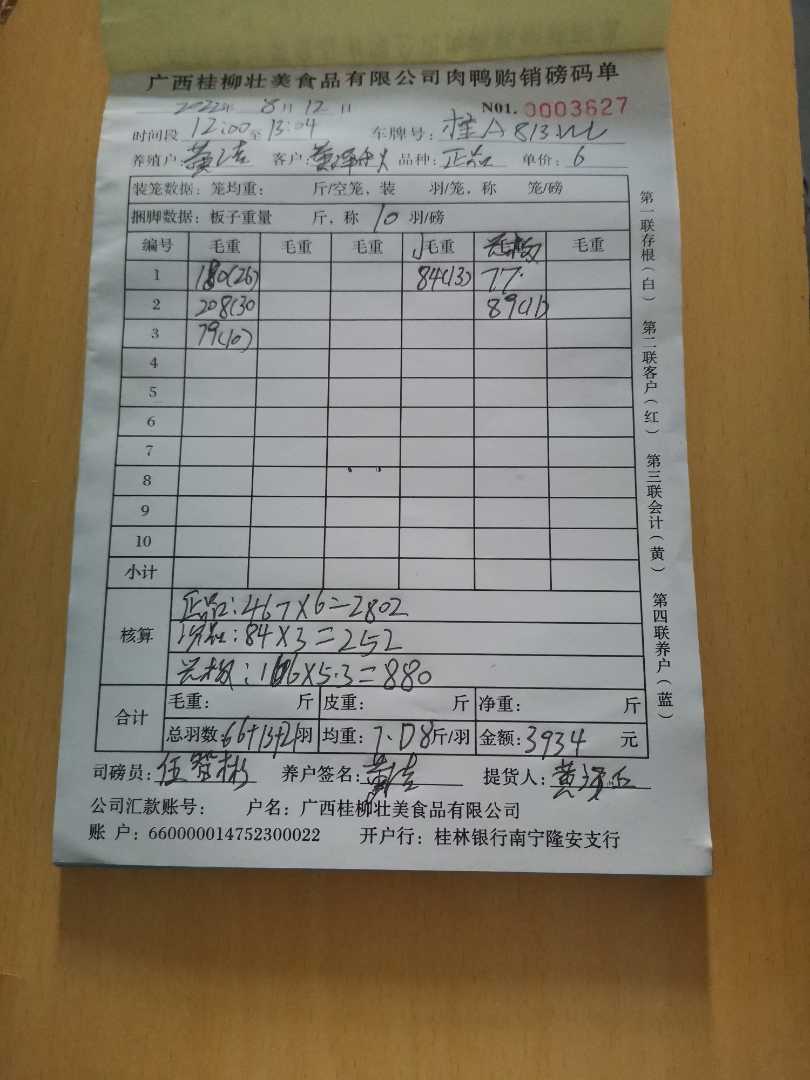 广西桂柳壮美食品有限公司肉鸭购销磅码单
2022年 8月 12日 N01. 0003627
时间段 12:00至 13:04 车牌号: 桂A 813
养殖户: 黄洁 客户: 黄 品种: 正品 单价: 6
装笼数据: 笼均重: 斤/空笼, 装 羽/笼, 称 笼/磅
捆脚数据: 板子重量 斤, 称 10 羽/磅
编号 毛重 毛重 毛重 小毛重 毛重
1 180(26) 84(13) 77.
2 208(30 89(11)
3 79(10)
4
5
6
7
8
9
10
小计
核算
正品: 467×6=2802
次品: 84×3=252
: 166×5.3=880
合计
毛重: 斤 皮重: 斤 净重: 斤
总羽数: 66+13+21羽 均重: 7.08斤/羽 金额: 3934 元
司磅员: 伍智彬 养户签名: 黄洁 提货人: 黄
公司汇款账号: 户名: 广西桂柳壮美食品有限公司
账 户: 660000014752300022 开户行: 桂林银行南宁隆安支行
第一联存根(白) 第二联客户(红) 第三联会计(黄) 第四联养户(蓝)